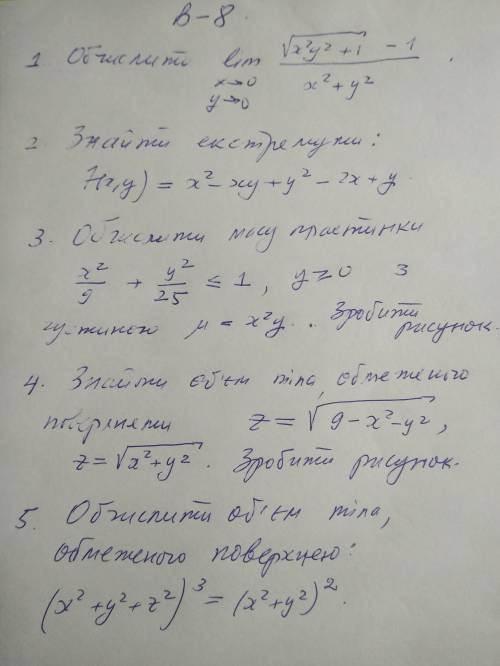 В-8
1. Обчислити lim x→0 y→0 (√(x²y²+1) - 1)/(x²+y²).
2. Знайти екстремуми:
z(x,y) = x² - xy + y² - 2x + y.
3. Обчислити масу пластинки
x²/9 + y²/25 ≤ 1, y ≥ 0 з
густиною μ = x²y. Зробити
рисунок.
4. Знайти об'єм тіла, обмеженого
поверхнями z = √(9-x²-y²),
z = √(x²+y²). Зробити рисунок.
5. Обчислити об'єм тіла,
обмеженого поверхнею:
(x²+y²+z²)³ = (x²+y²)².